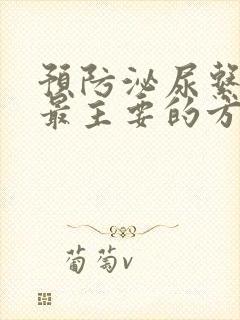 預防泌尿繫
最主要的方
葡萄v